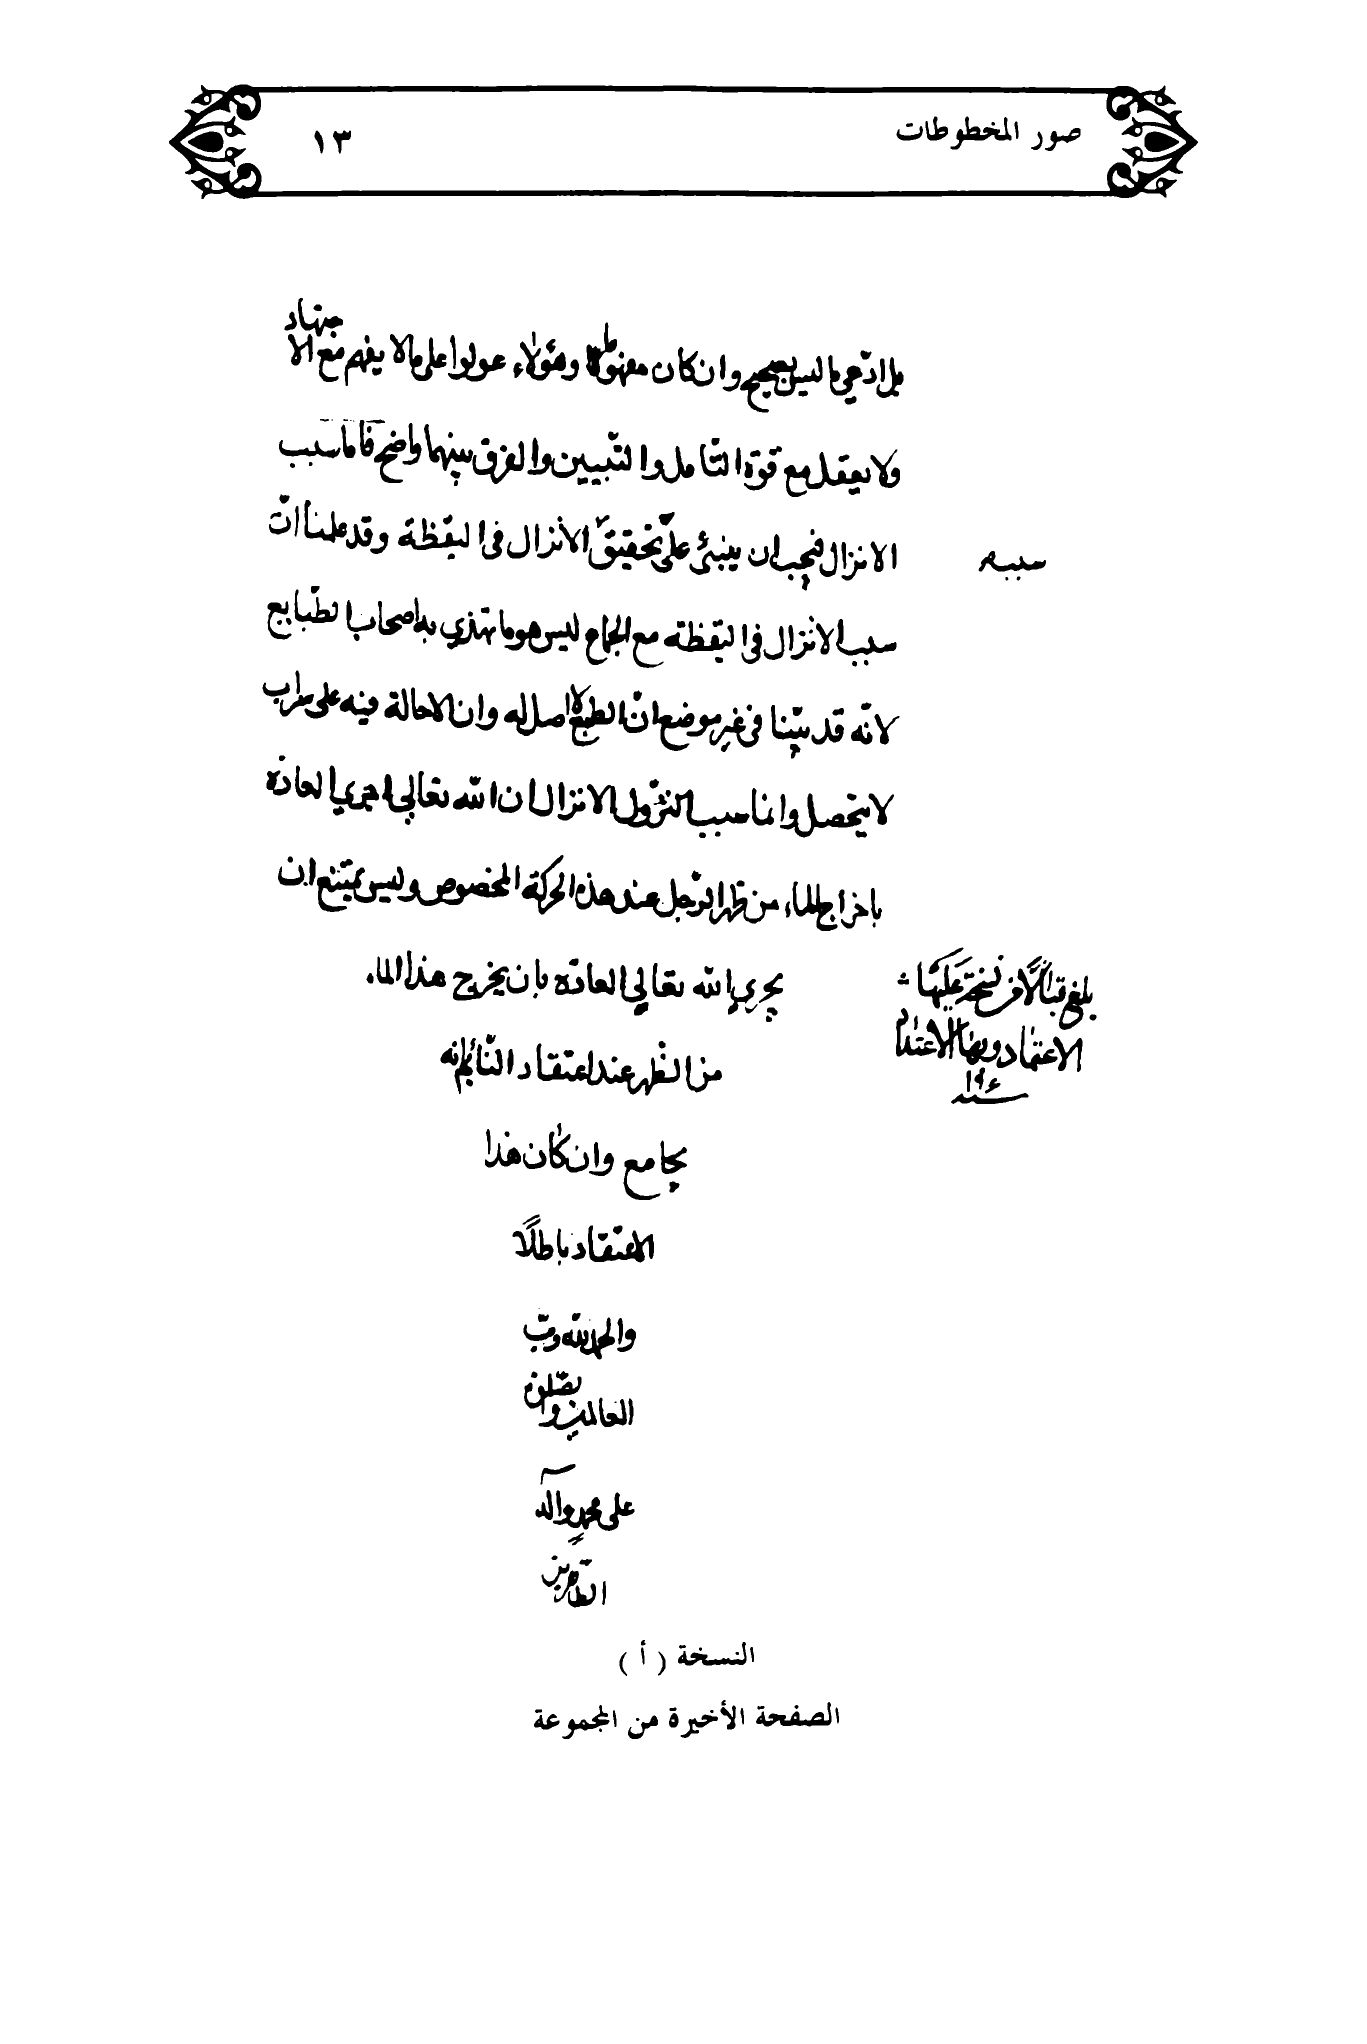 صور المخطوطات
١٣
بل ادّعي ما ليس بصحيح وان كان مفهومًا وهؤلاء عولوا على ما لا يفهم مع الاجتهاد
ولا يعقل مع قوّة التّأمل والتّبيين والفرق بينهما واضح فامّا سبب
الانزال فيجب ان ينبئ على تحقيق الانزال في اليقظة وقد علمنا انّ
سببه
سبب الانزال في اليقظة مع الجماع ليس هو ما تهذي به اصحاب الطّبايع
لانّه قد بيّنا في غير موضع انّ الطبع لا اصل له وان الاحالة فيه على سراب
لا يتحصل وانما سبب الانزال ان الله تعالى اجري العادة
باخراج الماء من ظهر الرّجل عند هذه الحركة المخصوص وليس يمتنع ان
يجري الله تعالى العادة بان يخرج هذا الماء
من الظّهر عند اعتقاد النّائم انه
يجامع وان كان هذا
الاعتقاد باطلًا
والحمد لله ربّ
العالمين والصّلوة
على محمد وآله
الطّاهرين
بلغ قبالًا من نسخة عليها
الاعتماد وبها الاعتداد
النسخة ( أ )
الصفحة الأخيرة من المجموعة